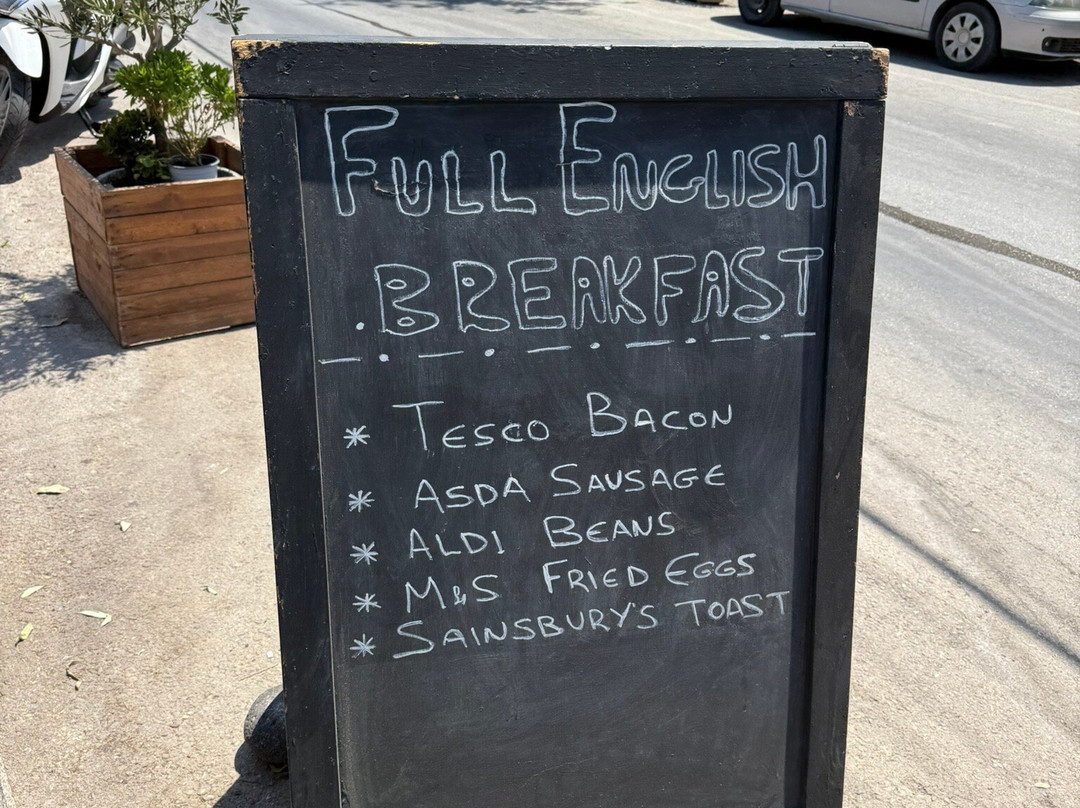 FULL ENGLISH
BREAKFAST
* TESCO BACON
* ASDA SAUSAGE
* ALDI BEANS
* M&S FRIED EGGS
* SAINSBURY'S TOAST